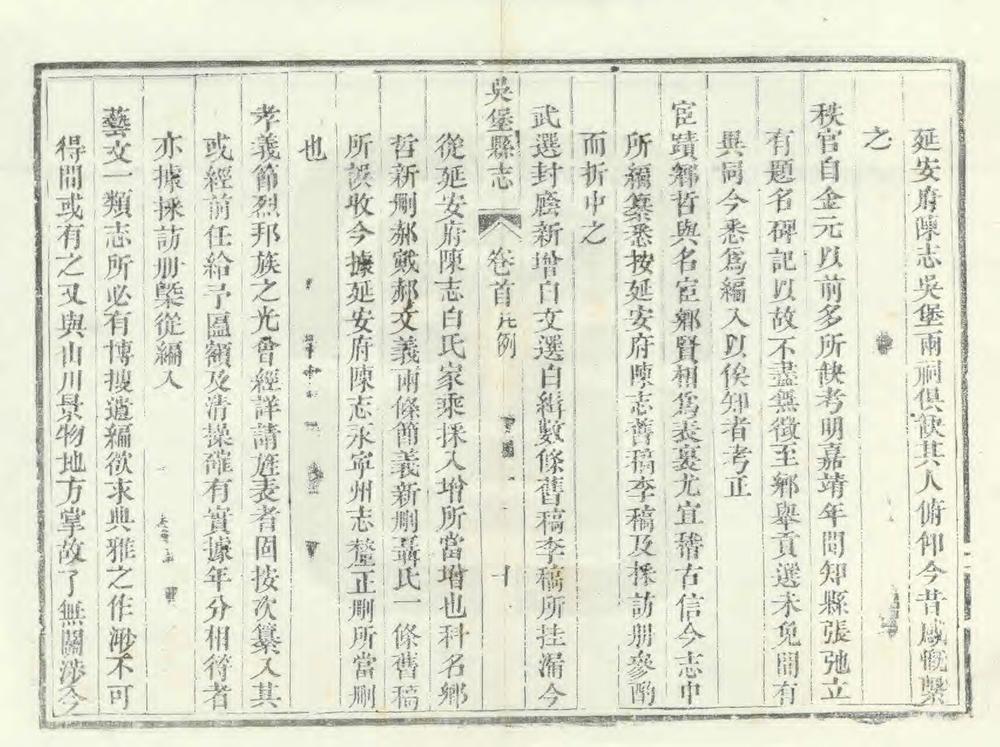 延安府陳志吳堡兩祠俱飲其人俯仰今昔感慨繫
之
秩官自金元以前多所缺考明嘉靖年間知縣張弛立
有題名碑記以故不盡無徵至鄉舉貢選未免間有
異同今悉爲編入以俟知者考正
宦蹟鄉哲與名宦鄉賢相爲表裏尤宜稽古信今志中
所編纂悉按延安府陳志舊稿李稿及採訪册參酌
而折中之
武選封廕新增白文選白緝數條舊稿李稿所挂漏今
吳堡縣志 卷首 凡例 十
從延安府陳志白氏家乘採入增所當增也科名鄉
哲新刪郝戴郝文義兩條節義新刪聶氏一條舊稿
所誤收今據延安府陳志永寧州志釐正刪所當刪
也
孝義節烈邦族之光曾經詳請旌表者固按次纂入其
或經前任給予匾額及清操確有實據年分相符者
亦據採訪册槩從編入
藝文一類志所必有博搜遺編欲求典雅之作渺不可
得間或有之又與山川景物地方掌故了無關涉今